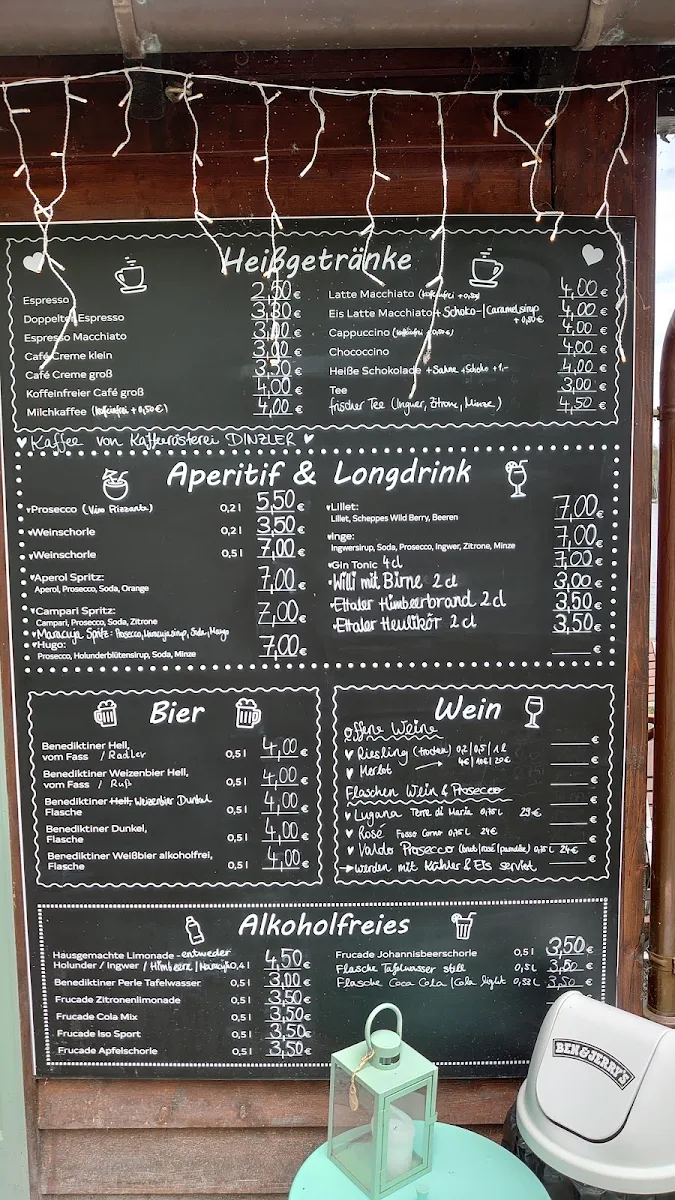 Heißgetränke
Espresso 2,50 €
Doppelter Espresso 3,80 €
Espresso Macchiato €
Café Creme klein 3,00 €
Café Creme groß 3,50 €
Koffeinfreier Café groß 4,00 €
Milchkaffee (koffeinfrei +0,50€) 4,00 €
Latte Macchiato (koffeinfrei +0,50€) 4,00 €
Eis Latte Macchiato + Schoko-|Caramelsirup 4,00 €
+ 0,50 €
Cappuccino (koffeinfrei +0,50€) 4,00 €
Chococcino 4,00 €
Heiße Schokolade + Sahne + Schoko + 1,- 4,00 €
Tee 3,00 €
frischer Tee (Ingwer, Zitrone, Minze) 4,50 €
Kaffee von Kaffeerösterei DINZLER
Aperitif & Longdrink
Prosecco (Vino Frizzante) 0,2 l 5,50 €
Weinschorle 0,2 l 3,50 €
Weinschorle 0,5 l 7,00 €
Aperol Spritz: 7,00 €
Aperol, Prosecco, Soda, Orange
Campari Spritz: 7,00 €
Campari, Prosecco, Soda, Zitrone
Maracuja Spritz: Prosecco, Maracujasirup, Soda, Mango
Hugo: 7,00 €
Prosecco, Holunderblütensirup, Soda, Minze
Lillet: 7,00 €
Lillet, Scheppes Wild Berry, Beeren
Inge: 7,00 €
Ingwersirup, Soda, Prosecco, Ingwer, Zitrone, Minze
Gin Tonic 4 cl 7,00 €
Willi mit Birne 2 cl 3,00 €
Ettaler Himbeerbrand 2 cl 3,50 €
Ettaler Heulikör 2 cl 3,50 €
€
Bier
Benediktiner Hell,
vom Fass / Radler 0,5 l 4,00 €
Benediktiner Weizenbier Hell,
vom Fass / Ruß 0,5 l 4,00 €
Benediktiner Hell, Weizenbier Dunkel
Flasche 0,5 l 4,00 €
Benediktiner Dunkel,
Flasche 0,5 l 4,00 €
Benediktiner Weißbier alkoholfrei,
Flasche 0,5 l 4,00 €
Wein
offene Weine €
Riesling (trocken) 0,2 | 0,5 | 1 l €
Merlot 4€ | 10€ | 20€ €
Flaschen Wein & Prosecco €
Lugana Terre di Maria 0,75 L 29€ €
Rosé Fosso Corno 0,75 L 24€ €
Valdo Prosecco (brut | rosé | paradise) 0,75 L 24€ €
werden mit Kühler & Eis serviert €
Alkoholfreies
Hausgemachte Limonade - entweder
Holunder / Ingwer / Himbeere | Maracuja 0,4 l 4,50 €
Benediktiner Perle Tafelwasser 0,5 l 3,00 €
Frucade Zitronenlimonade 0,5 l 3,50 €
Frucade Cola Mix 0,5 l 3,50 €
Frucade Iso Sport 0,5 l 3,50 €
Frucade Apfelschorle 0,5 l 3,50 €
Frucade Johannisbeerschorle 0,5 l 3,50 €
Flasche Tafelwasser still 0,5 L 3,50 €
Flasche Coca Cola | Cola light 0,33 L 3,50 €
BEN & JERRY'S